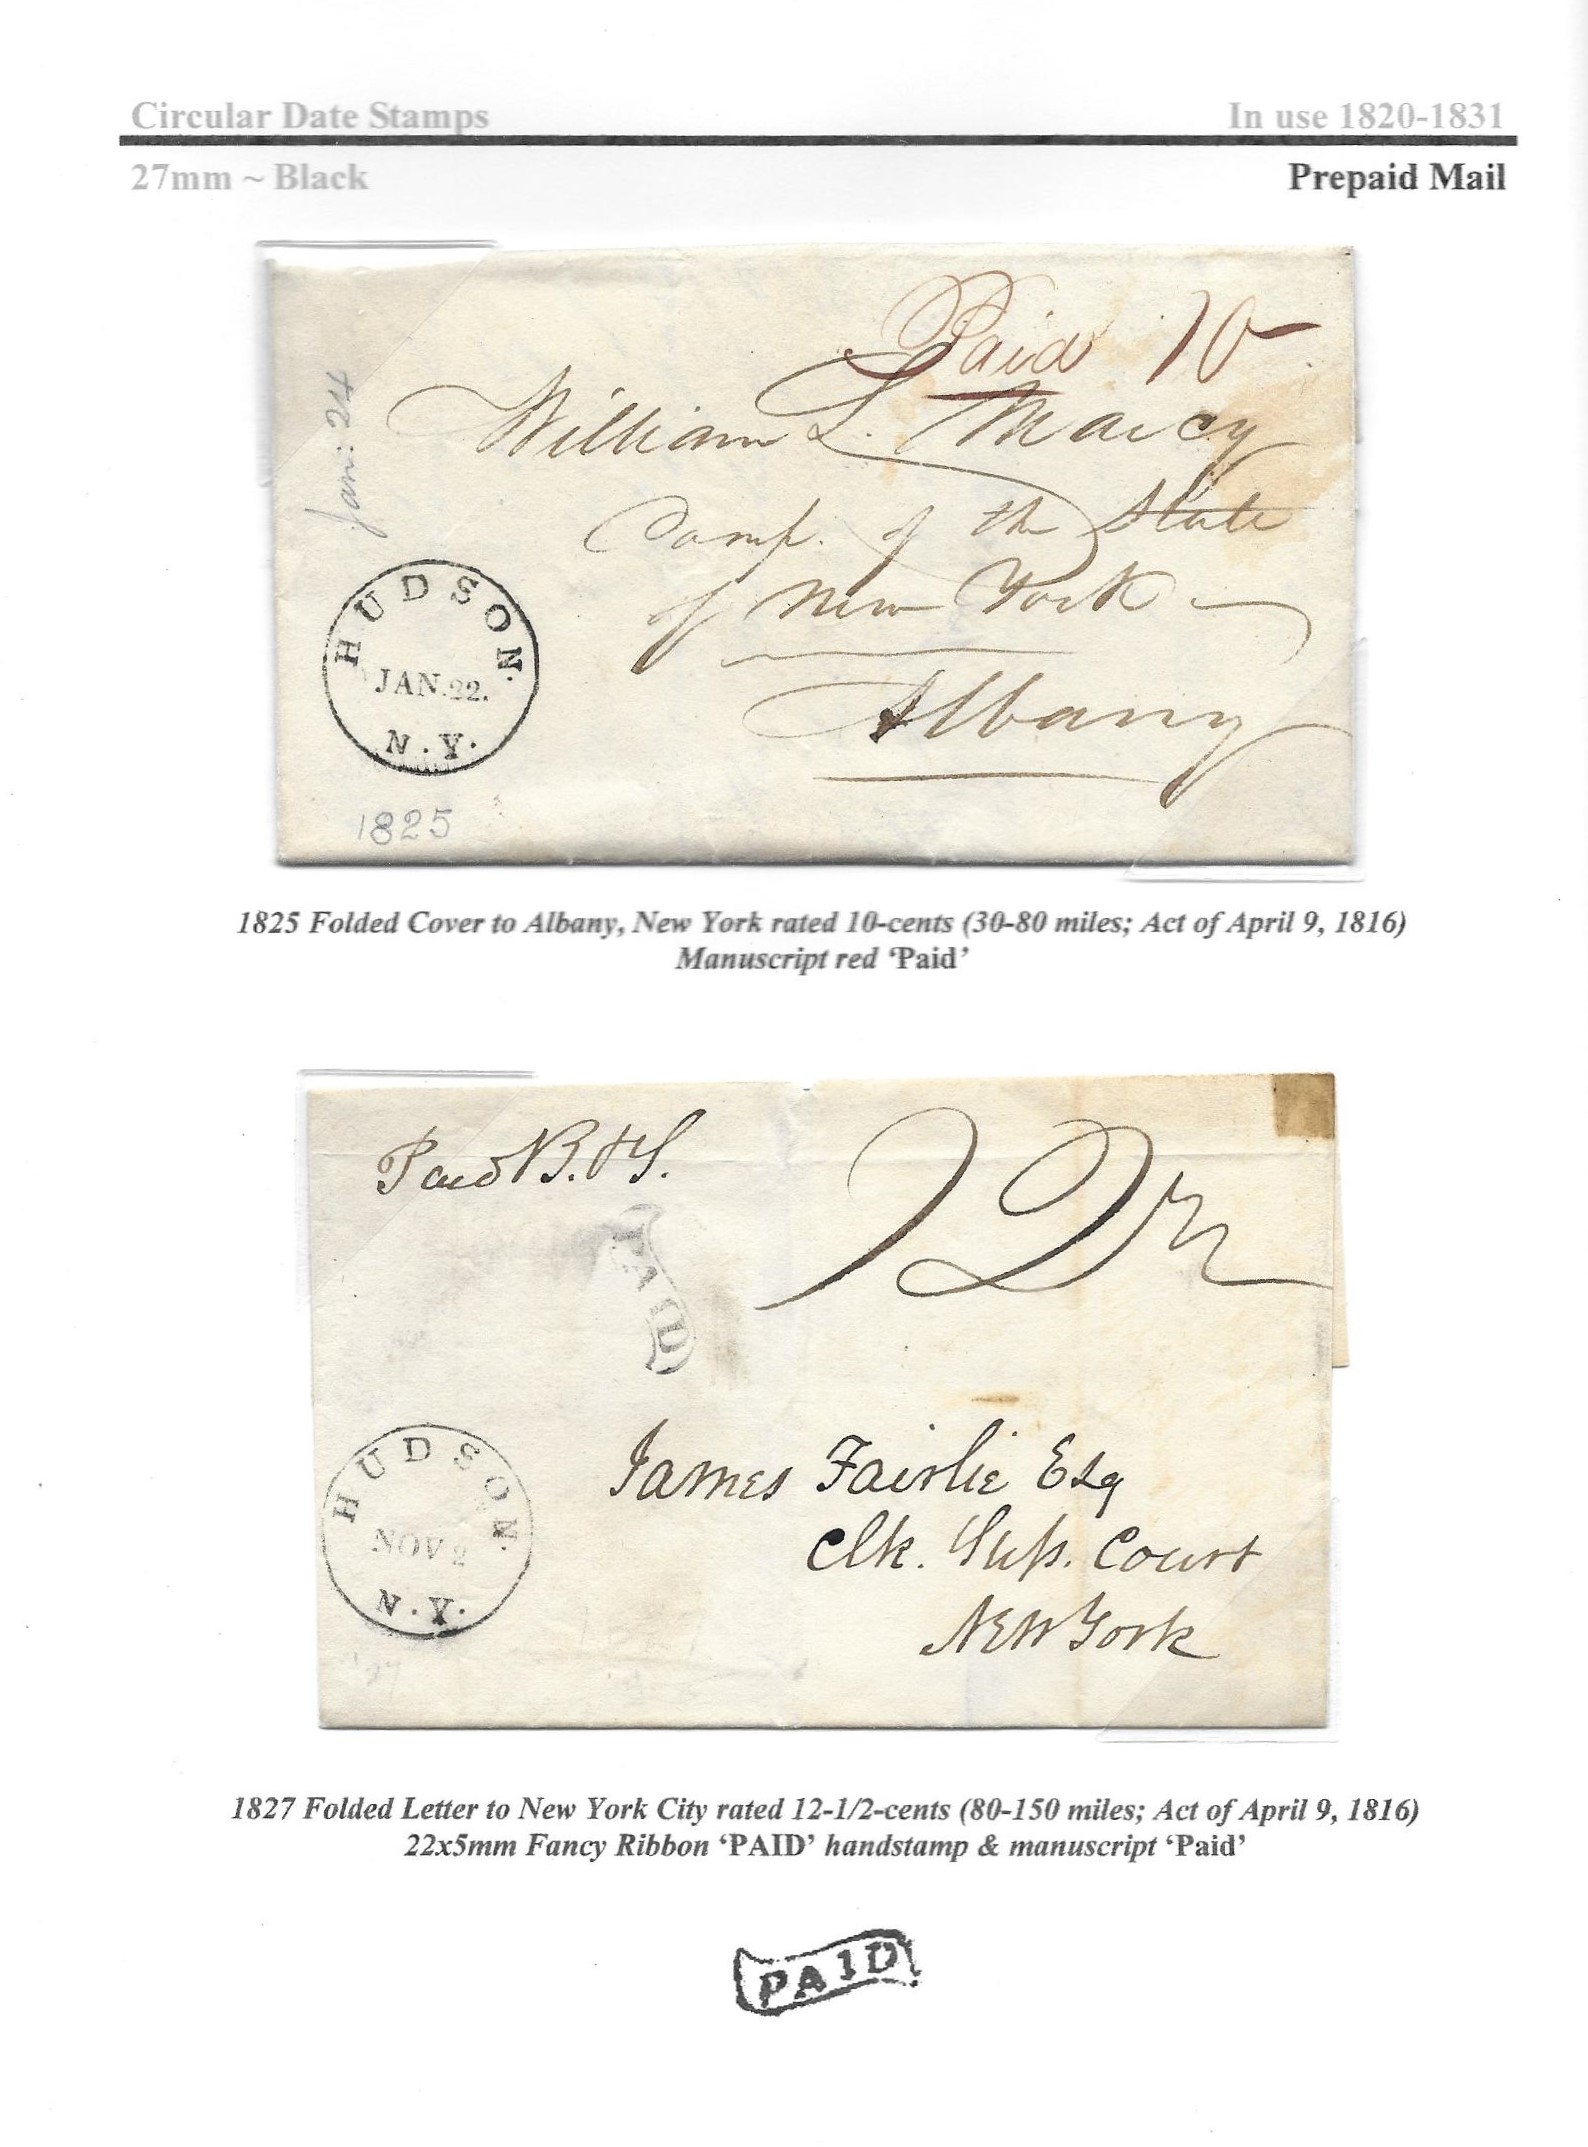 Circular Date Stamps In use 1820-1831
27mm ~ Black Prepaid Mail
Paid 10
Jan: 24
William L. Marcy
Comp. of the State
of New York
Albany
HUDSON.
JAN. 22.
N.Y.
1825
1825 Folded Cover to Albany, New York rated 10-cents (30-80 miles; Act of April 9, 1816)
Manuscript red ‘Paid’
Paid B. & S.
12½
PAID
James Fairlie Esq
Clk. Sup. Court
New York
HUDSON.
NOV 2
N.Y.
'27
1827 Folded Letter to New York City rated 12-1/2-cents (80-150 miles; Act of April 9, 1816)
22x5mm Fancy Ribbon ‘PAID’ handstamp & manuscript ‘Paid’
PAID